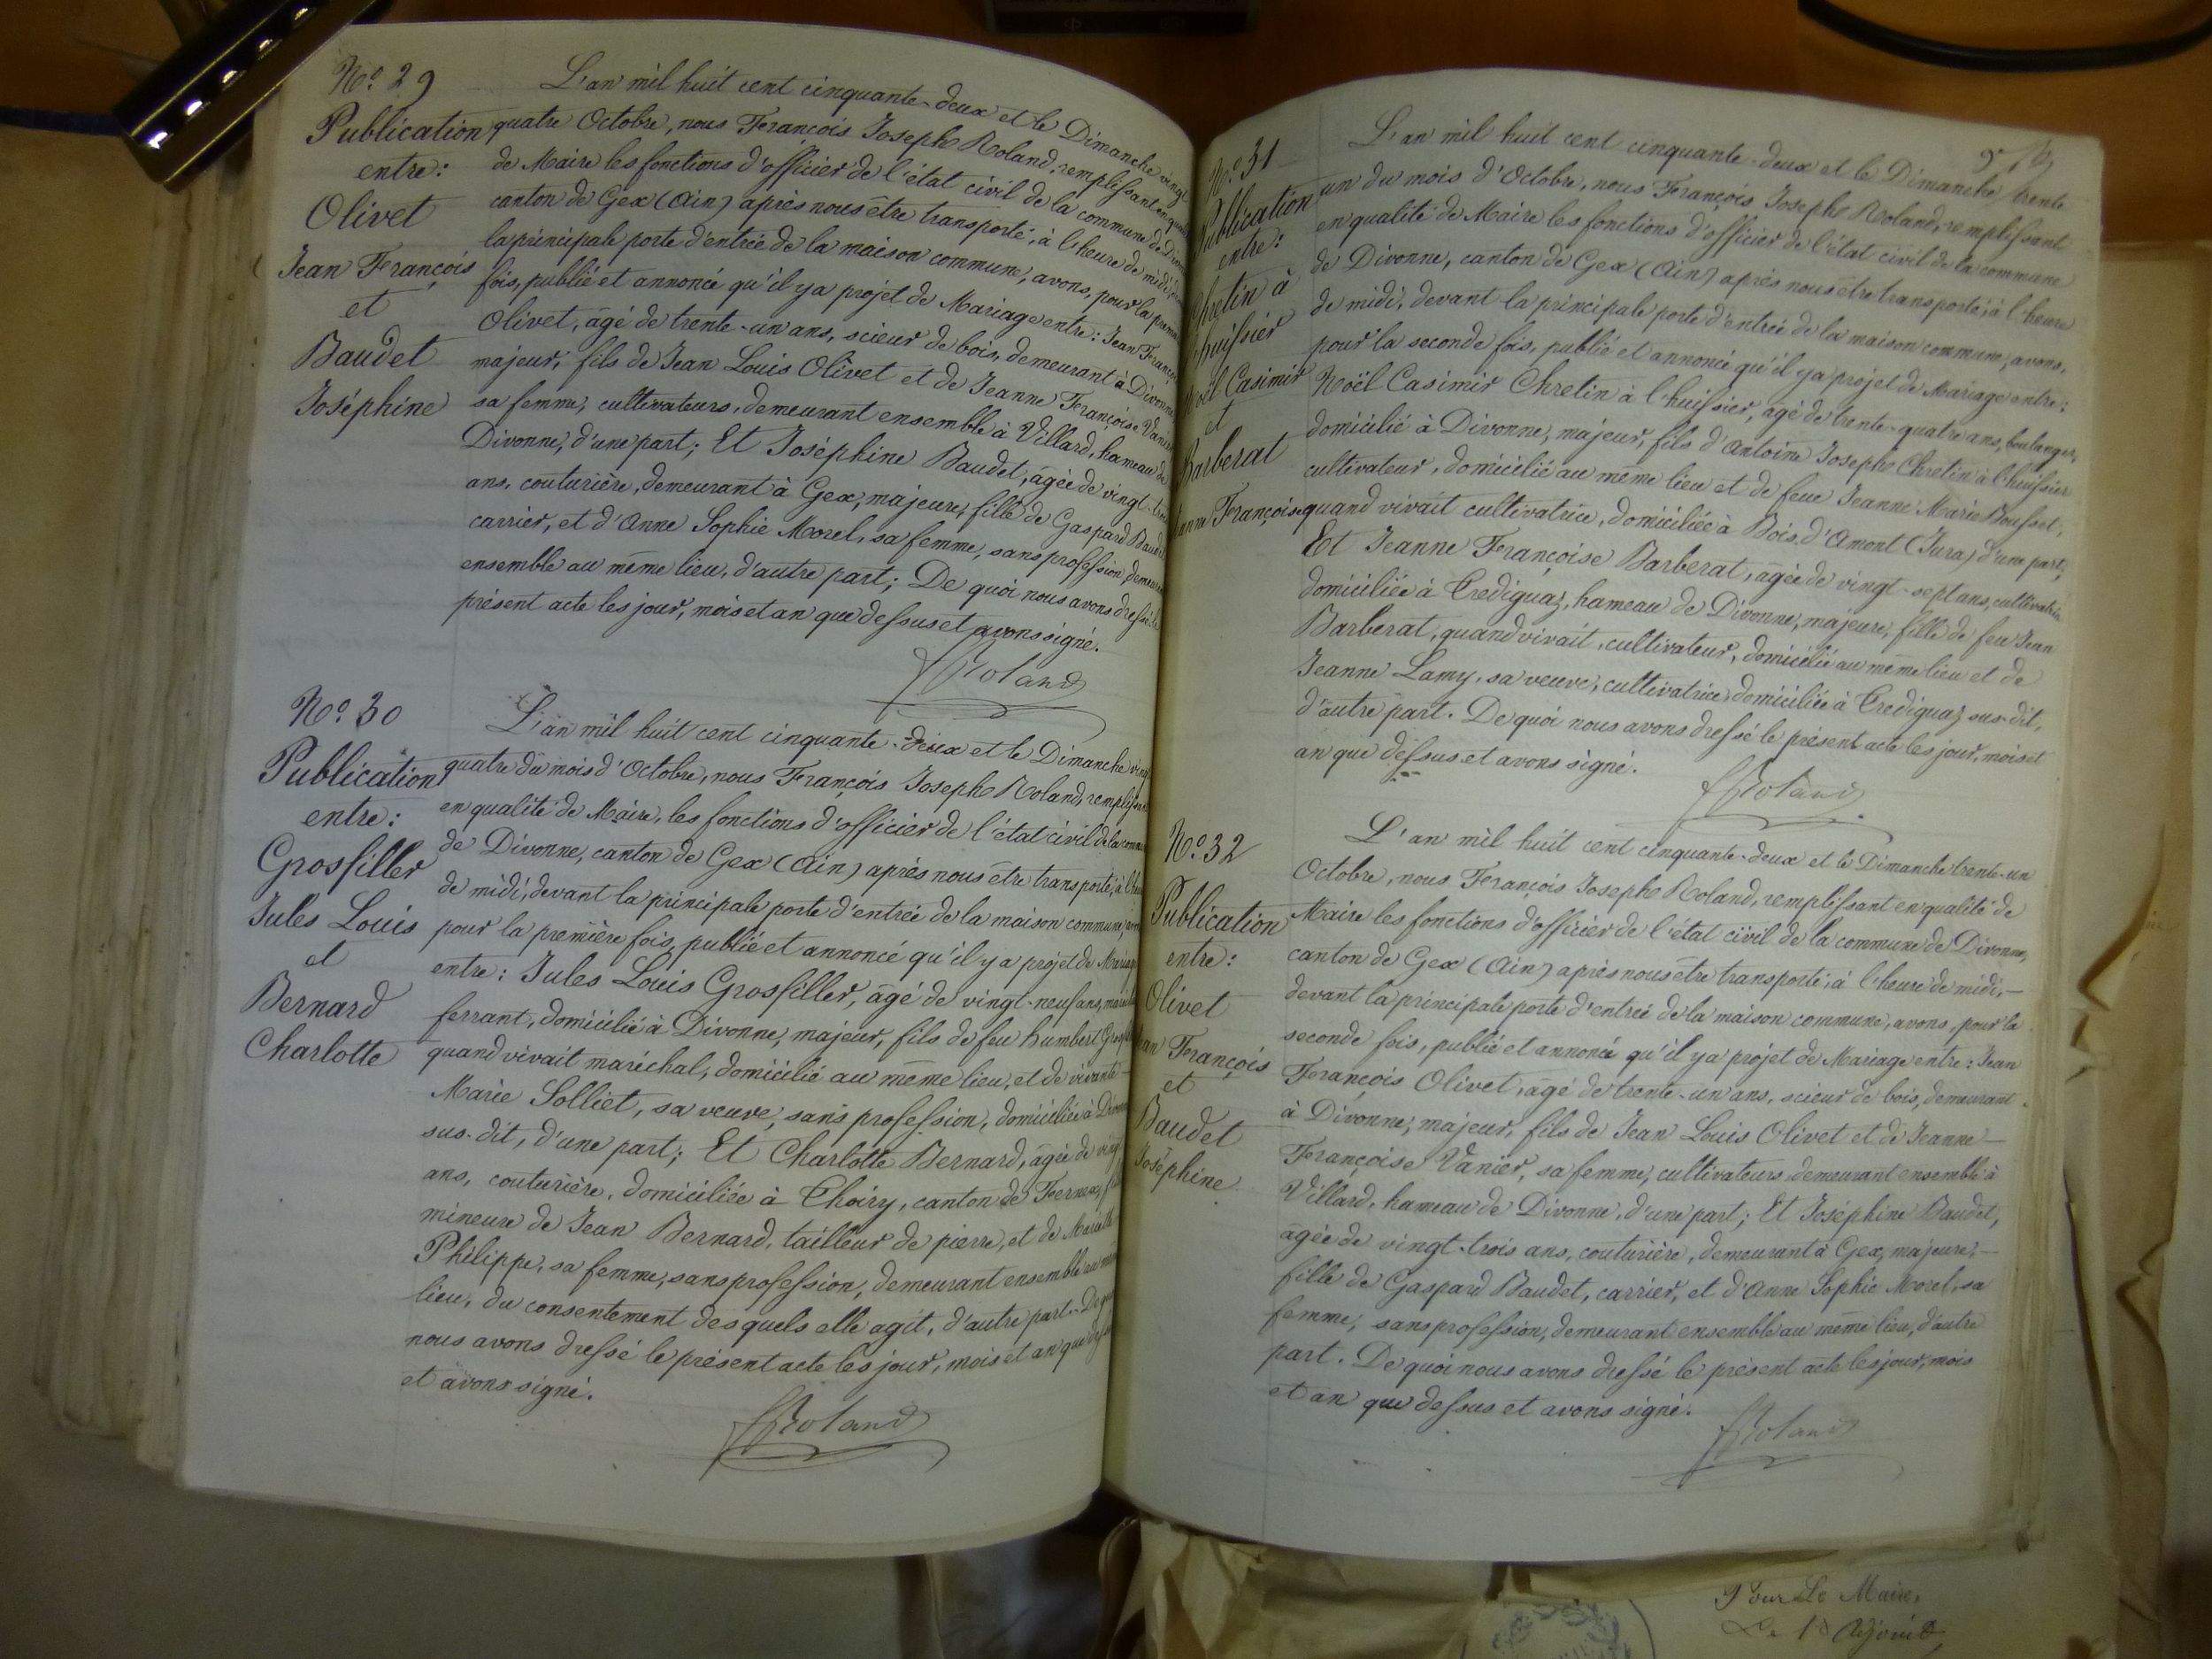 N.º 29
Publication
entre:
Olivet
Jean François
et
Baudet
Joséphine
L'an mil huit cent cinquante-deux et le Dimanche vingt
quatre Octobre, nous François Joseph Roland, remplissant en
de Maire les fonctions d'officier de l'état civil de la commune de
canton de Gex (Ain) après nous être transporté, à l'heure de midi,
la principale porte d'entrée de la maison commune, avons, pour la
fois, publié et annoncé qu'il y a projet de Mariage entre: Jean
Olivet, âgé de trente-un ans, scieur de bois, demeurant à Divonne
majeur, fils de Jean Louis Olivet et de Jeanne Françoise Vanier
sa femme, cultivateurs, demeurant ensemble à Villard, hameau de
Divonne, d'une part; Et Joséphine Baudet, âgée de vingt-
ans, couturière, demeurant à Gex, majeure, fille de Gaspard
carrier, et d'Anne Sophie Morel, sa femme, sans profession,
ensemble au même lieu, d'autre part; De quoi nous avons dressé le
présent acte les jour, mois et an que dessus et avons signé.
Roland
N.º 30
Publication
entre:
Grosfiller
Jules Louis
et
Bernard
Charlotte
L'an mil huit cent cinquante-deux et le Dimanche vingt
quatre du mois d'Octobre, nous François Joseph Roland,
en qualité de Maire, les fonctions d'officier de l'état civil de la
de Divonne, canton de Gex (Ain) après nous être transporté, à
de midi, devant la principale porte d'entrée de la maison commune,
pour la première fois, publié et annoncé qu'il y a projet de Mariage
entre: Jules Louis Grosfiller, âgé de vingt-neuf ans,
ferrant, domicilié à Divonne, majeur, fils de feu Humbert
quand vivait maréchal, domicilié au même lieu, et de vivante
Marie Solliet, sa veuve, sans profession, domiciliée à Divonne
sus-dit, d'une part; Et Charlotte Bernard, âgée de vingt
ans, couturière, domiciliée à Thoiry, canton de Fernex,
mineure de Jean Bernard, tailleur de pierre, et de
Philippe, sa femme, sans profession, demeurant ensemble au
lieu, du consentement desquels elle agit, d'autre part. De quoi
nous avons dressé le présent acte les jour, mois et an que
et avons signé.
Roland
N.º 31
Publication
entre:
Chretin à
l'huissier
Noël Casimir
et
Barberat
Jeanne Françoise
L'an mil huit cent cinquante-deux et le Dimanche trente
un du mois d'Octobre, nous François Joseph Roland, remplissant
en qualité de Maire les fonctions d'officier de l'état civil de la commune
de Divonne, canton de Gex (Ain) après nous être transporté, à l'heure
de midi, devant la principale porte d'entrée de la maison commune, avons,
pour la seconde fois, publié et annoncé qu'il y a projet de Mariage entre:
Noël Casimir Chretin à l'huissier, âgé de trente-quatre ans, boulanger,
domicilié à Divonne, majeur, fils d'Antoine Joseph Chretin à l'huissier
cultivateur, domicilié au même lieu et de feue Jeanne Marie
quand vivait cultivatrice, domiciliée à Bois-d'Amont (Jura) d'une part;
Et Jeanne Françoise Barberat, âgée de vingt-sept ans, cultivatrice
domiciliée à Crediguaz, hameau de Divonne, majeure, fille de feu Jean
Barberat, quand vivait, cultivateur, domicilié au même lieu et de
Jeanne Lamy, sa veuve, cultivatrice, domiciliée à Crediguaz sus-dit,
d'autre part. De quoi nous avons dressé le présent acte les jour, mois et
an que dessus et avons signé.
Roland
N.º 32
Publication
entre:
Olivet
Jean François
et
Baudet
Joséphine
L'an mil huit cent cinquante-deux et le Dimanche trente-un
Octobre, nous François Joseph Roland, remplissant en qualité de
Maire les fonctions d'officier de l'état civil de la commune de Divonne,
canton de Gex (Ain) après nous être transporté, à l'heure de midi,—
devant la principale porte d'entrée de la maison commune, avons, pour la
seconde fois, publié et annoncé qu'il y a projet de Mariage entre: Jean
François Olivet, âgé de trente-un ans, scieur de bois, demeurant
à Divonne, majeur, fils de Jean Louis Olivet et de Jeanne—
Françoise Vanier, sa femme, cultivateurs, demeurant ensemble à
Villard, hameau de Divonne, d'une part; Et Joséphine Baudet,
âgée de vingt-trois ans, couturière, demeurant à Gex, majeure,—
fille de Gaspard Baudet, carrier, et d'Anne Sophie Morel, sa
femme, sans profession, demeurant ensemble au même lieu, d'autre
part. De quoi nous avons dressé le présent acte les jour, mois
et an que dessus et avons signé.
Roland
Pour Le Maire,
Adjoint